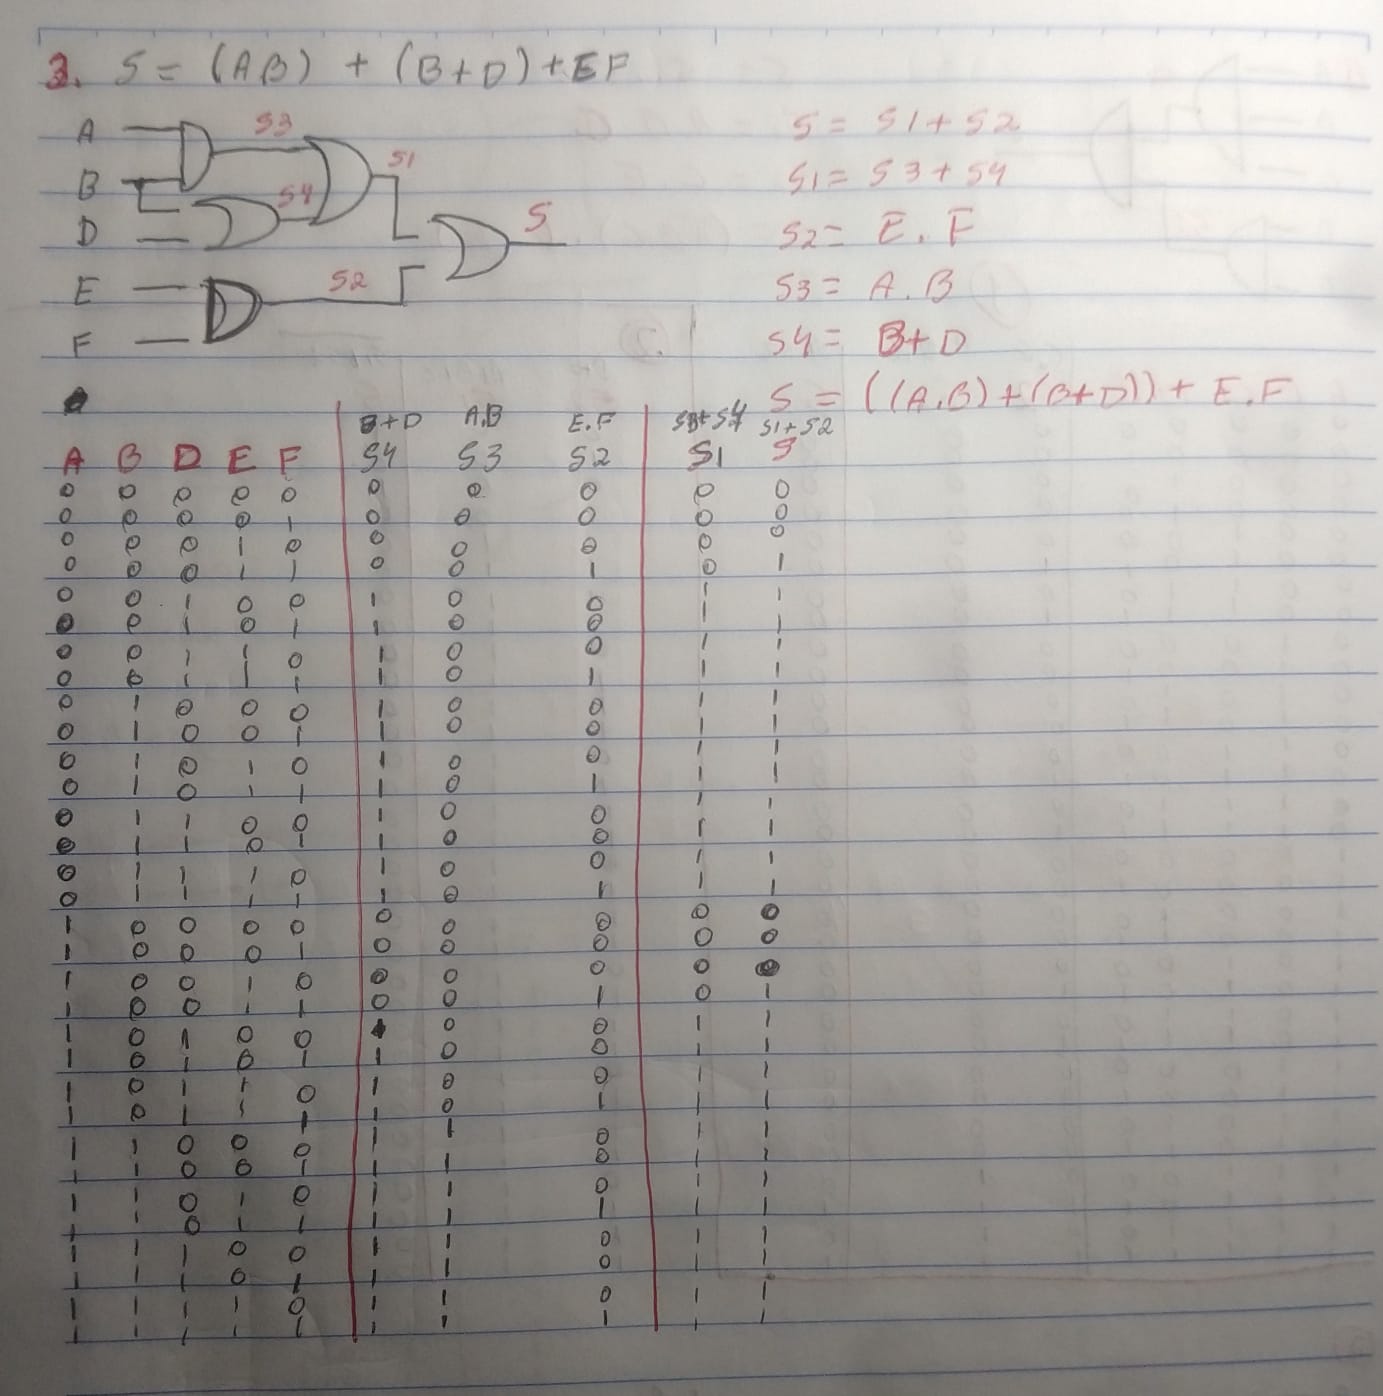 3. S = (AB) + (B+D) + EF
A S3 S = S1 + S2
B S4 S1 S1 = S3 + S4
D S S2 = E.F
E S2 S3 = A.B
F S4 = B+D
S = ((A.B) + (B+D)) + E.F
B+D A.B E.F S3+S4 S1+S2
A B D E F S4 S3 S2 S1 S
0 0 0 0 0 0 0 0 0 0
0 0 0 0 1 0 0 0 0 0
0 0 0 1 0 0 0 0 0 0
0 0 0 1 1 0 0 1 0 1
0 0 1 0 0 1 0 0 1 1
0 0 1 0 1 1 0 0 1 1
0 0 1 1 0 1 0 0 1 1
0 0 1 1 1 1 0 1 1 1
0 1 0 0 0 1 0 0 1 1
0 1 0 0 1 1 0 0 1 1
0 1 0 1 0 1 0 0 1 1
0 1 0 1 1 1 0 1 1 1
0 1 1 0 0 1 0 0 1 1
0 1 1 0 1 1 0 0 1 1
0 1 1 1 0 1 0 0 1 1
0 1 1 1 1 1 0 1 1 1
1 0 0 0 0 0 0 0 0 0
1 0 0 0 1 0 0 0 0 0
1 0 0 1 0 0 0 0 0 0
1 0 0 1 1 0 0 1 0 1
1 0 1 0 0 1 0 0 1 1
1 0 1 0 1 1 0 0 1 1
1 0 1 1 0 1 0 0 1 1
1 0 1 1 1 1 0 1 1 1
1 1 0 0 0 1 1 0 1 1
1 1 0 0 1 1 1 0 1 1
1 1 0 1 0 1 1 0 1 1
1 1 0 1 1 1 1 1 1 1
1 1 1 0 0 1 1 0 1 1
1 1 1 0 1 1 1 0 1 1
1 1 1 1 0 1 1 0 1 1
1 1 1 1 1 1 1 1 1 1